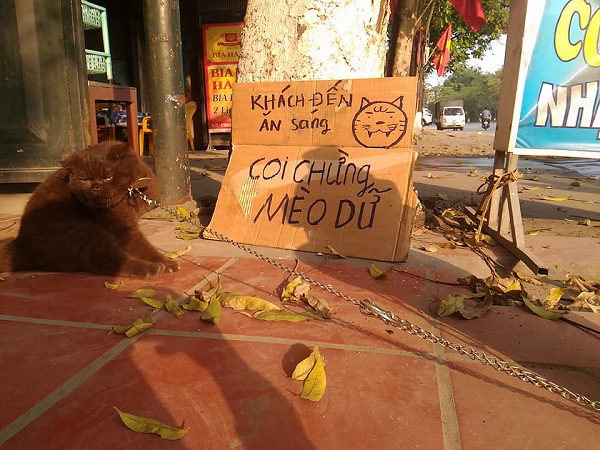 BIA HÀ
BIA
HÀ
BIA
2 Li
KHÁCH ĐẾN
ĂN Sáng
COI CHỪNG
MÈO DỮ
CO
NHẬ